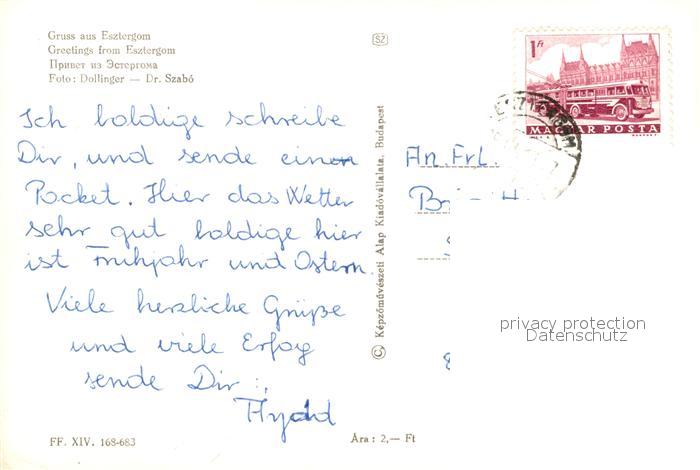 Gruss aus Esztergom
Greetings from Esztergom
Привет из Эстергома
Foto: Dollinger — Dr. Szabó
Ich holdige schreibe
Dir, und sende einen
Pocket. Hier das Wetter
sehr gut holdige hier
ist Fruhjahr und Ostern.
Viele herzliche Grüße
und viele Erfog
sende Dir :,
FF. XIV. 168-683
Ára: 2,— Ft
© Képzőművészeti Alap Kiadóvállalata, Budapest
1 Ft
MAGYAR POSTA
ESZTERGOM
An. Frl.
privacy protection
Datenschutz